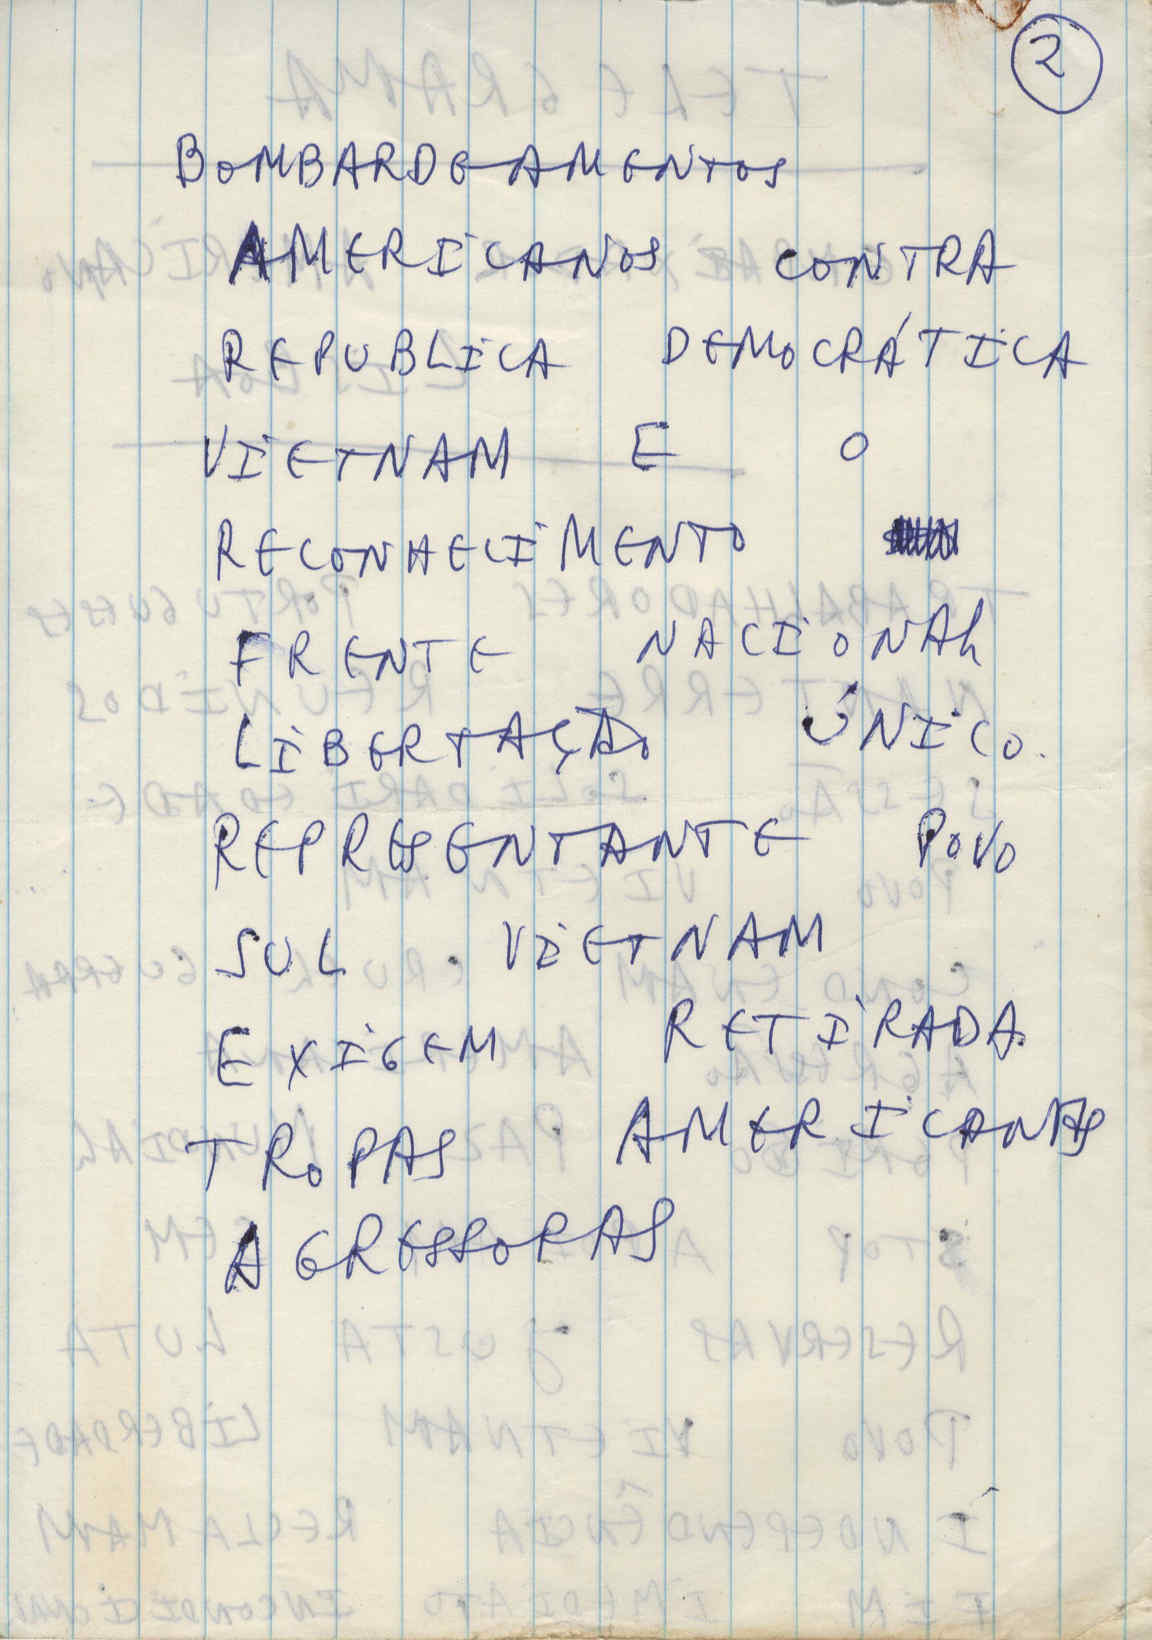 2
BOMBARDEAMENTOS
AMERICANOS CONTRA
REPUBLICA DEMOCRÁTICA
VIETNAM E O
RECONHECIMENTO
FRENTE NACIONAL
LIBERTAÇÃO ÚNICO
REPRESENTANTE POVO
SUL VIETNAM
EXIGEM RETIRADA
TROPAS AMERICANAS
AGRESSORAS